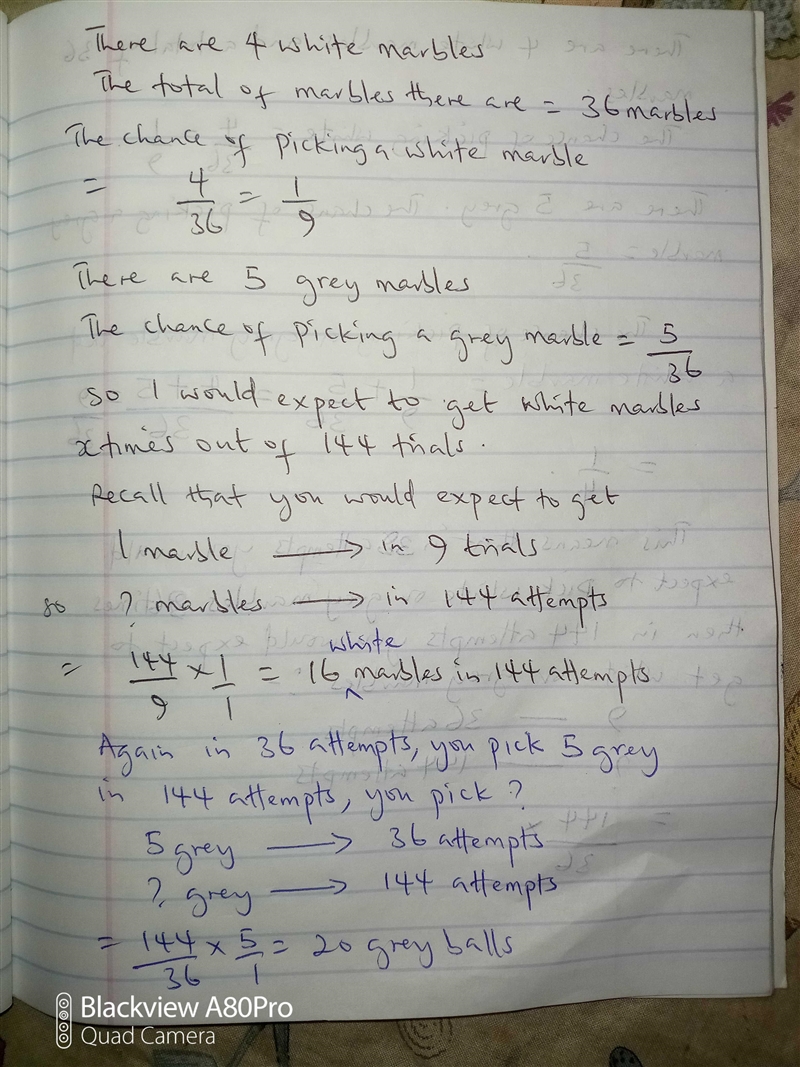 There are 4 white marbles
The total of marbles there are = 36 marbles
The chance of picking a white marble
= 4/36 = 1/9
There are 5 grey marbles
The chance of picking a grey marble = 5/36
so I would expect to get white marbles
x times out of 144 trials.
Recall that you would expect to get
1 marble → in 9 trials
so ? marbles → in 144 attempts
= 144/9 × 1/1 = 16 white marbles in 144 attempts
Again in 36 attempts, you pick 5 grey
in 144 attempts, you pick ?
5 grey → 36 attempts
? grey → 144 attempts
= 144/36 × 5/1 = 20 grey balls
Blackview A80Pro
Quad Camera